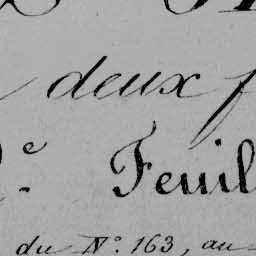 deux f
e. Feuil
du N°. 163, au